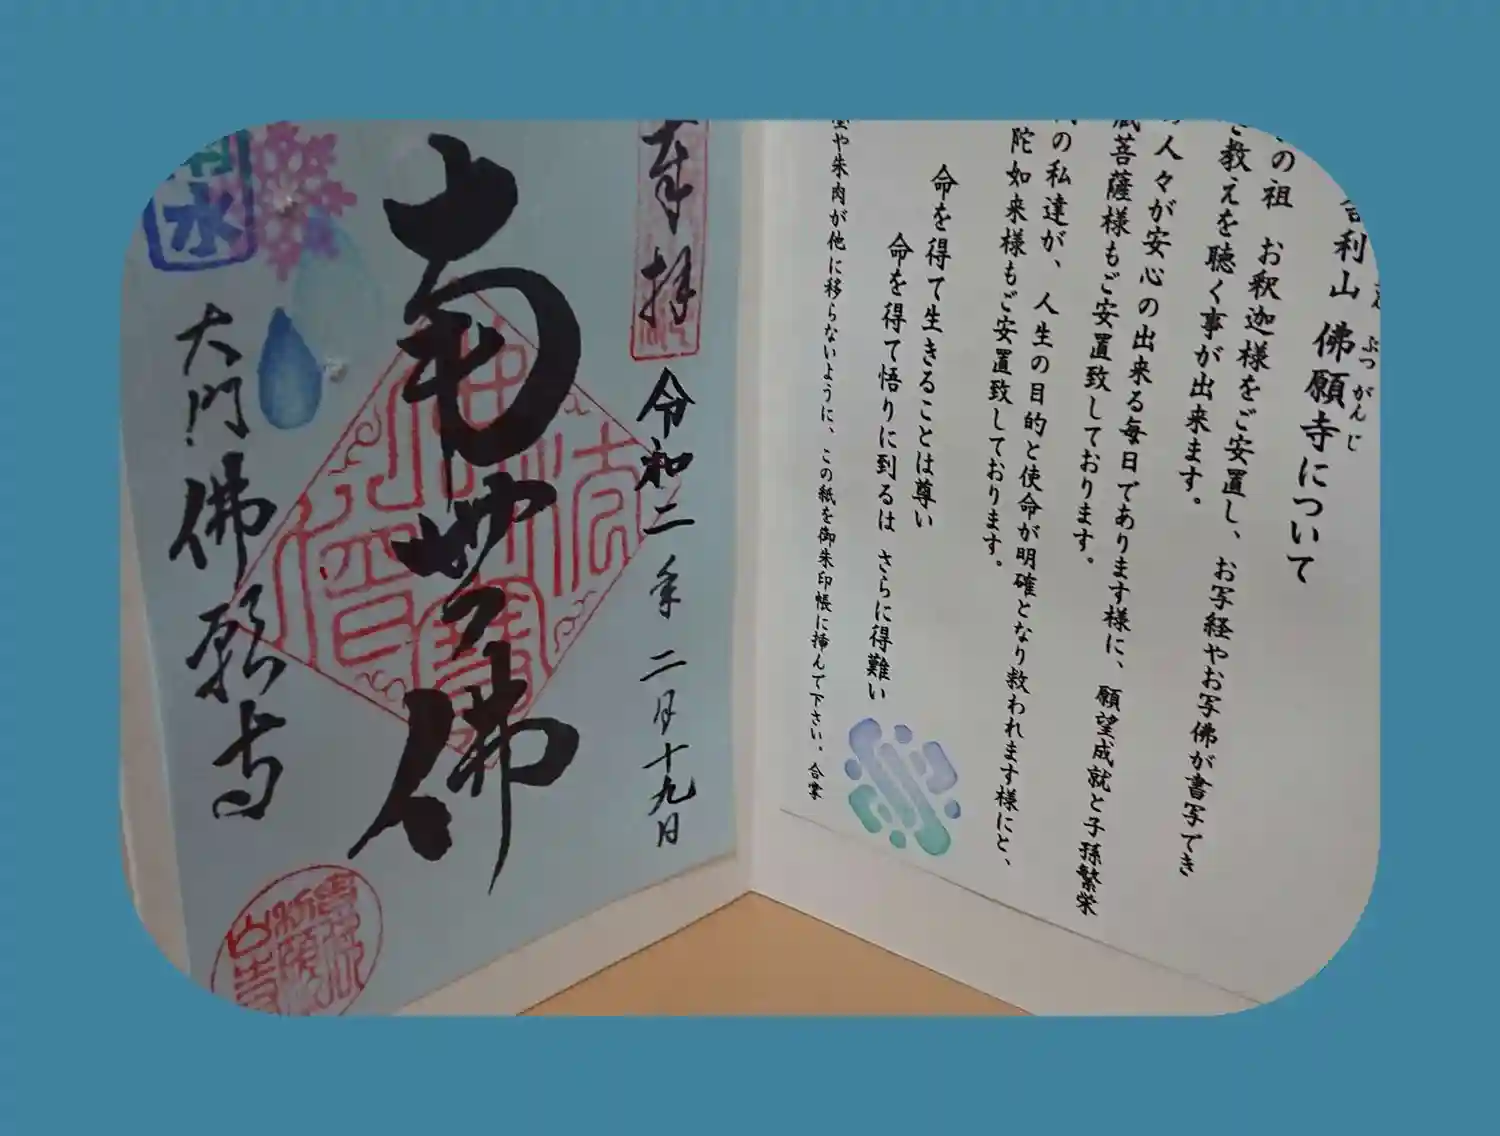 利山 佛願寺について
ぶつがんじ
の祖 お釈迦様をご安置し、お写経やお写佛が書写でき
教えを聴く事が出来ます。
人々が安心の出来る毎日であります様に、願望成就と子孫繁栄
菩薩様もご安置致しております。
の私達が、人生の目的と使命が明確となり救われます様にと、
陀如来様もご安置致しております。
命を得て生きることは尊い
命を得て悟りに到るは さらに得難い
や朱肉が他に移らないように、この紙を御朱印帳に挿んで下さい。合掌
奉拝
令和二年 二月十九日
南無佛
大門 佛願寺
水